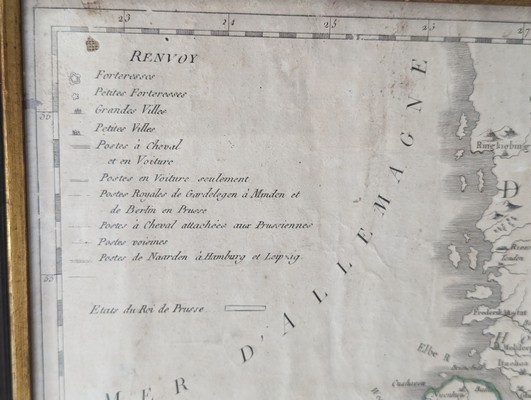 23 24 25 26 27
RENVOY
Forteresses
Petites Forteresses
Grandes Villes
Petites Villes
Postes à Cheval
et en Voiture
Postes en Voiture seulement
Postes Royales de Gardelegen à Minden et
de Berlin en Prusse
Postes à Cheval attachées aux Prussiennes
Postes voisines
Postes de Naarden à Hamburg et Leipsig.
Etats du Roi de Prusse
56
55
MER D'ALLEMAGNE
D
H
Elbe R.